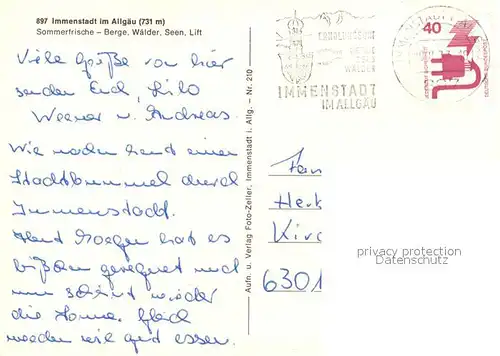 897 Immenstadt im Allgäu (731 m)
Sommerfrische – Berge, Wälder, Seen, Lift
Viele Grüße von hier
senden Euch, Hilo
Werner u. Andreas.
Wir machen heut einen
Stadtbummel durch
Immenstadt.
Heut Morgen hat es
bißchen geregnet und
nun scheint wieder
die Sonne. Gleich
werden wir gut essen.
Aufn. u. Verlag Foto-Zeller, Immenstadt i. Allg. – Nr. 210
ERHOLUNGSORT
BERGE
SEEN
WÄLDER
IMMENSTADT
IM ALLGÄU
40
Fam
Herb
Kirc
6301
privacy protection
Datenschutz